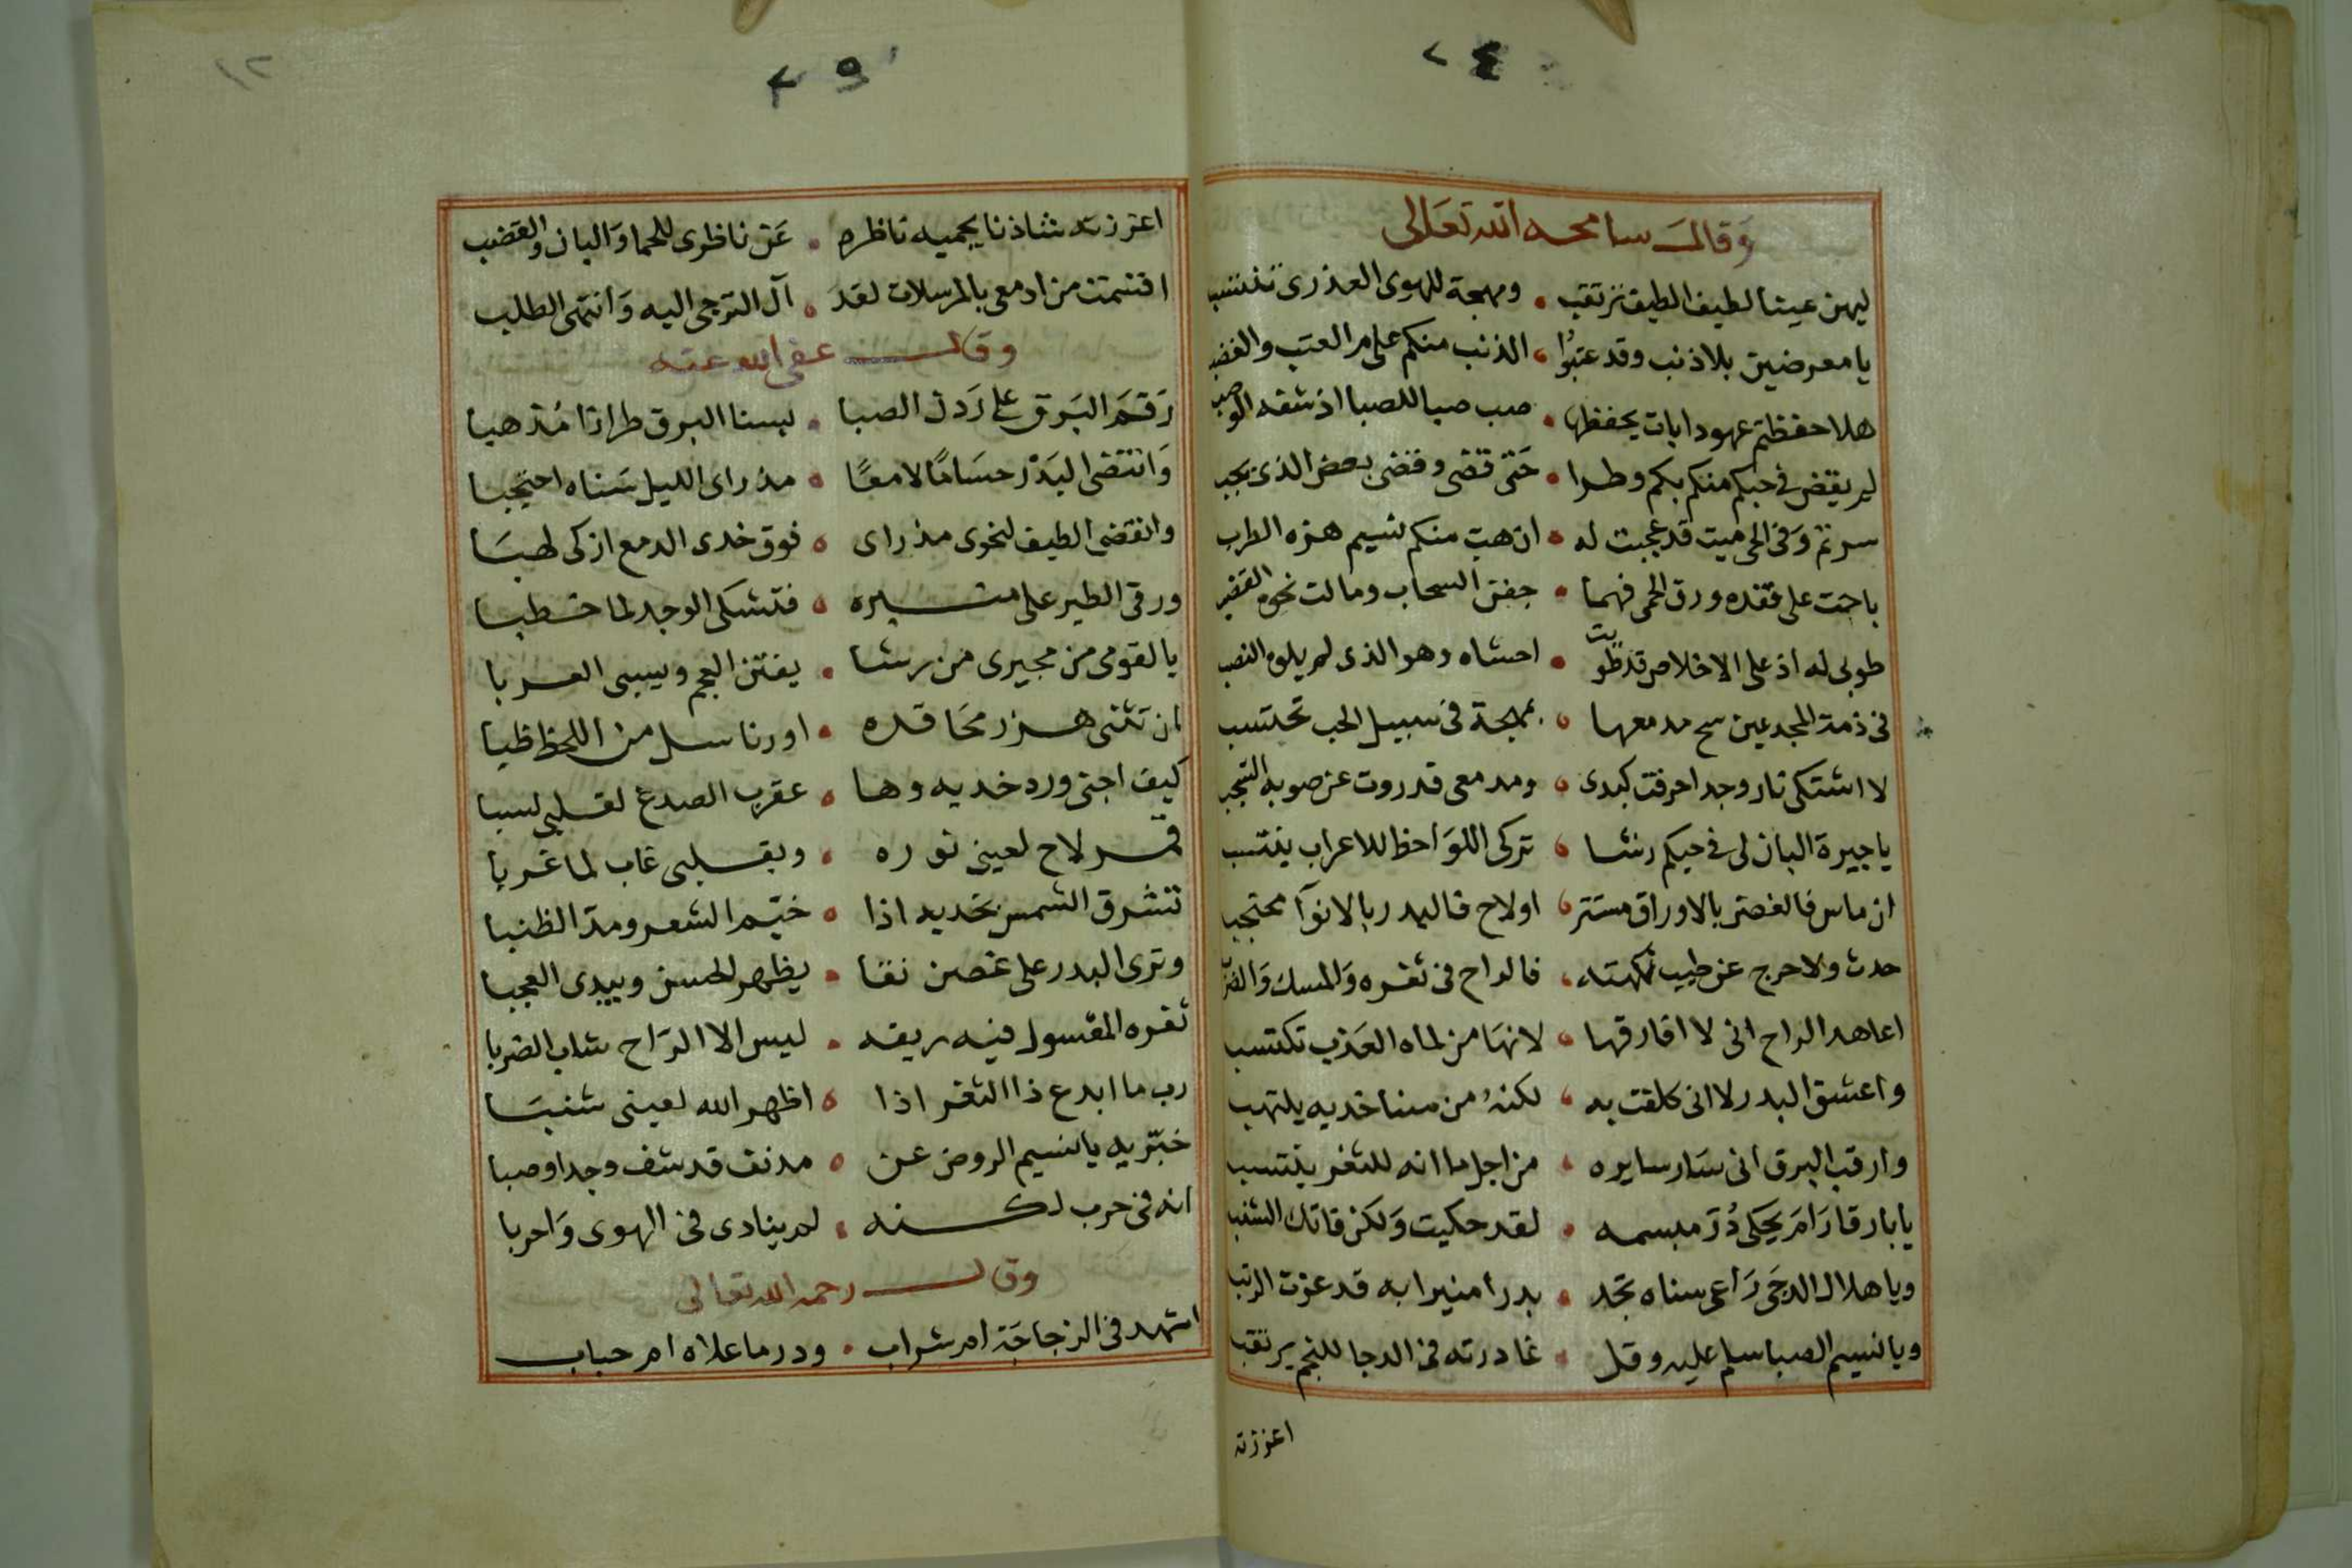 ٢٤
وقال سامحه الله تعالى
ليهن عينا لطيف الطيف ترتقب ومهجة للهوى العذرى تنتسب
يا معرضين بلا ذنب وقد عتبوا الذنب منكم على مر العتب والغضب
هلا حفظتم عهودا بات يحفظها صب صبا للصبا اذ شفه الوصب
لم يقض فى حبكم منكم بكم وطرا حتى قضى وقضى بعض الذى يجب
سرتم وفى الحى ميت قد عجبت له ان هب منكم نسيم هزه الطرب
ناحت على فقده ورق الحمى فهما جفن السحاب ومالت نحوه القضب
طوبى له اذ على الاخلاص قد طويت احشاه وهو الذى لم يلوه النصب
فى ذمة المجد عين سح مدمعها بمهجة فى سبيل الحب تحتسب
لا اشتكى نار وجد احرقت كبدى ومدمعى قد روت عن صوبه السحب
يا جيرة البان لى فى حيكم رشا تركى اللواحظ للاعراب ينتسب
ان ماس فالغصن بالاوراق مستتر او لاح فالبدر بالانوآ محتجب
حدث ولا حرج عن طيب نكهته فالراح فى ثغره والمسك والضرب
اعاهد الراح انى لا افارقها لانها من لماه العذب تكتسب
واعشق البدر لا انى كلفت به لكنه من سنا خديه يلتهب
وارقب البرق انى سار سايره من اجل ما انه للثغر ينتسب
يا بارقا رام يحكى در مبسمه لقد حكيت ولكن فاتك الشنب
ويا هلال الدجى راعى سناه تجد بدرا منيرا به قد عزت الرتب
ويا نسيم الصبا سلم عليه وقل غادرته فى الدجا للنجم يرتقب
اعززته
١٢
٢٥
اعززته شاذنا يحميه ناظره عن ناظرى للحما والبان والقضب
اقسمت من ادمعى بالمرسلات لقد آل الترجى اليه وانتهى الطلب
وقال عفى الله عنه
رقم البرق على ردن الصبا بسنا البرق طرازا مذهبا
وانتضى البدر حساما لامعا مذ راى الليل سناه احتجبا
وانقضى الطيف لنحوى مذ راى فوق خدى الدمع ازكى لهبا
ورقى الطير على منبره فتشكى الوجد لما خطبا
يا لقومى من مجيرى من رشا يفتن العجم ويسبى العربا
ان تثنى هز رمحا قده او رنا سل من اللحظ ظبا
كيف اجنى ورد خديه وها عقرب الصدغ لقلبى لسبا
قمر لاح لعينى نوره وبقلبى غاب لما غربا
تشرق الشمس بخديه اذا خيم الشعر ومد الطنبا
وترى البدر على غصن نقا يظهر الحسن ويبدى العجبا
ثغره المعسول فيه ريقه ليس الا الراح شاب الضربا
رب ما ابدع ذا الثغر اذا اظهر الله لعينى شنبا
خبريه يا نسيم الروض عن مدنف قد شف وجدا وصبا
انه فى حرب لكنه لم ينادى فى الهوى واحربا
وقال رحمه الله تعالى
اشهد فى الزجاجة ام شراب ودر ما علاه ام حباب